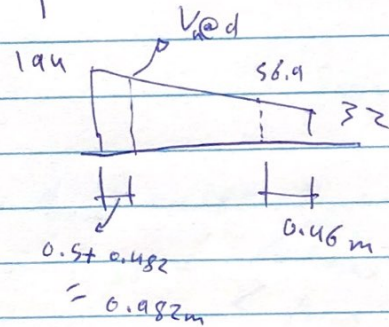 Vu@d
194
56.9
32
0.46 m
0.5+ 0.482
= 0.982m